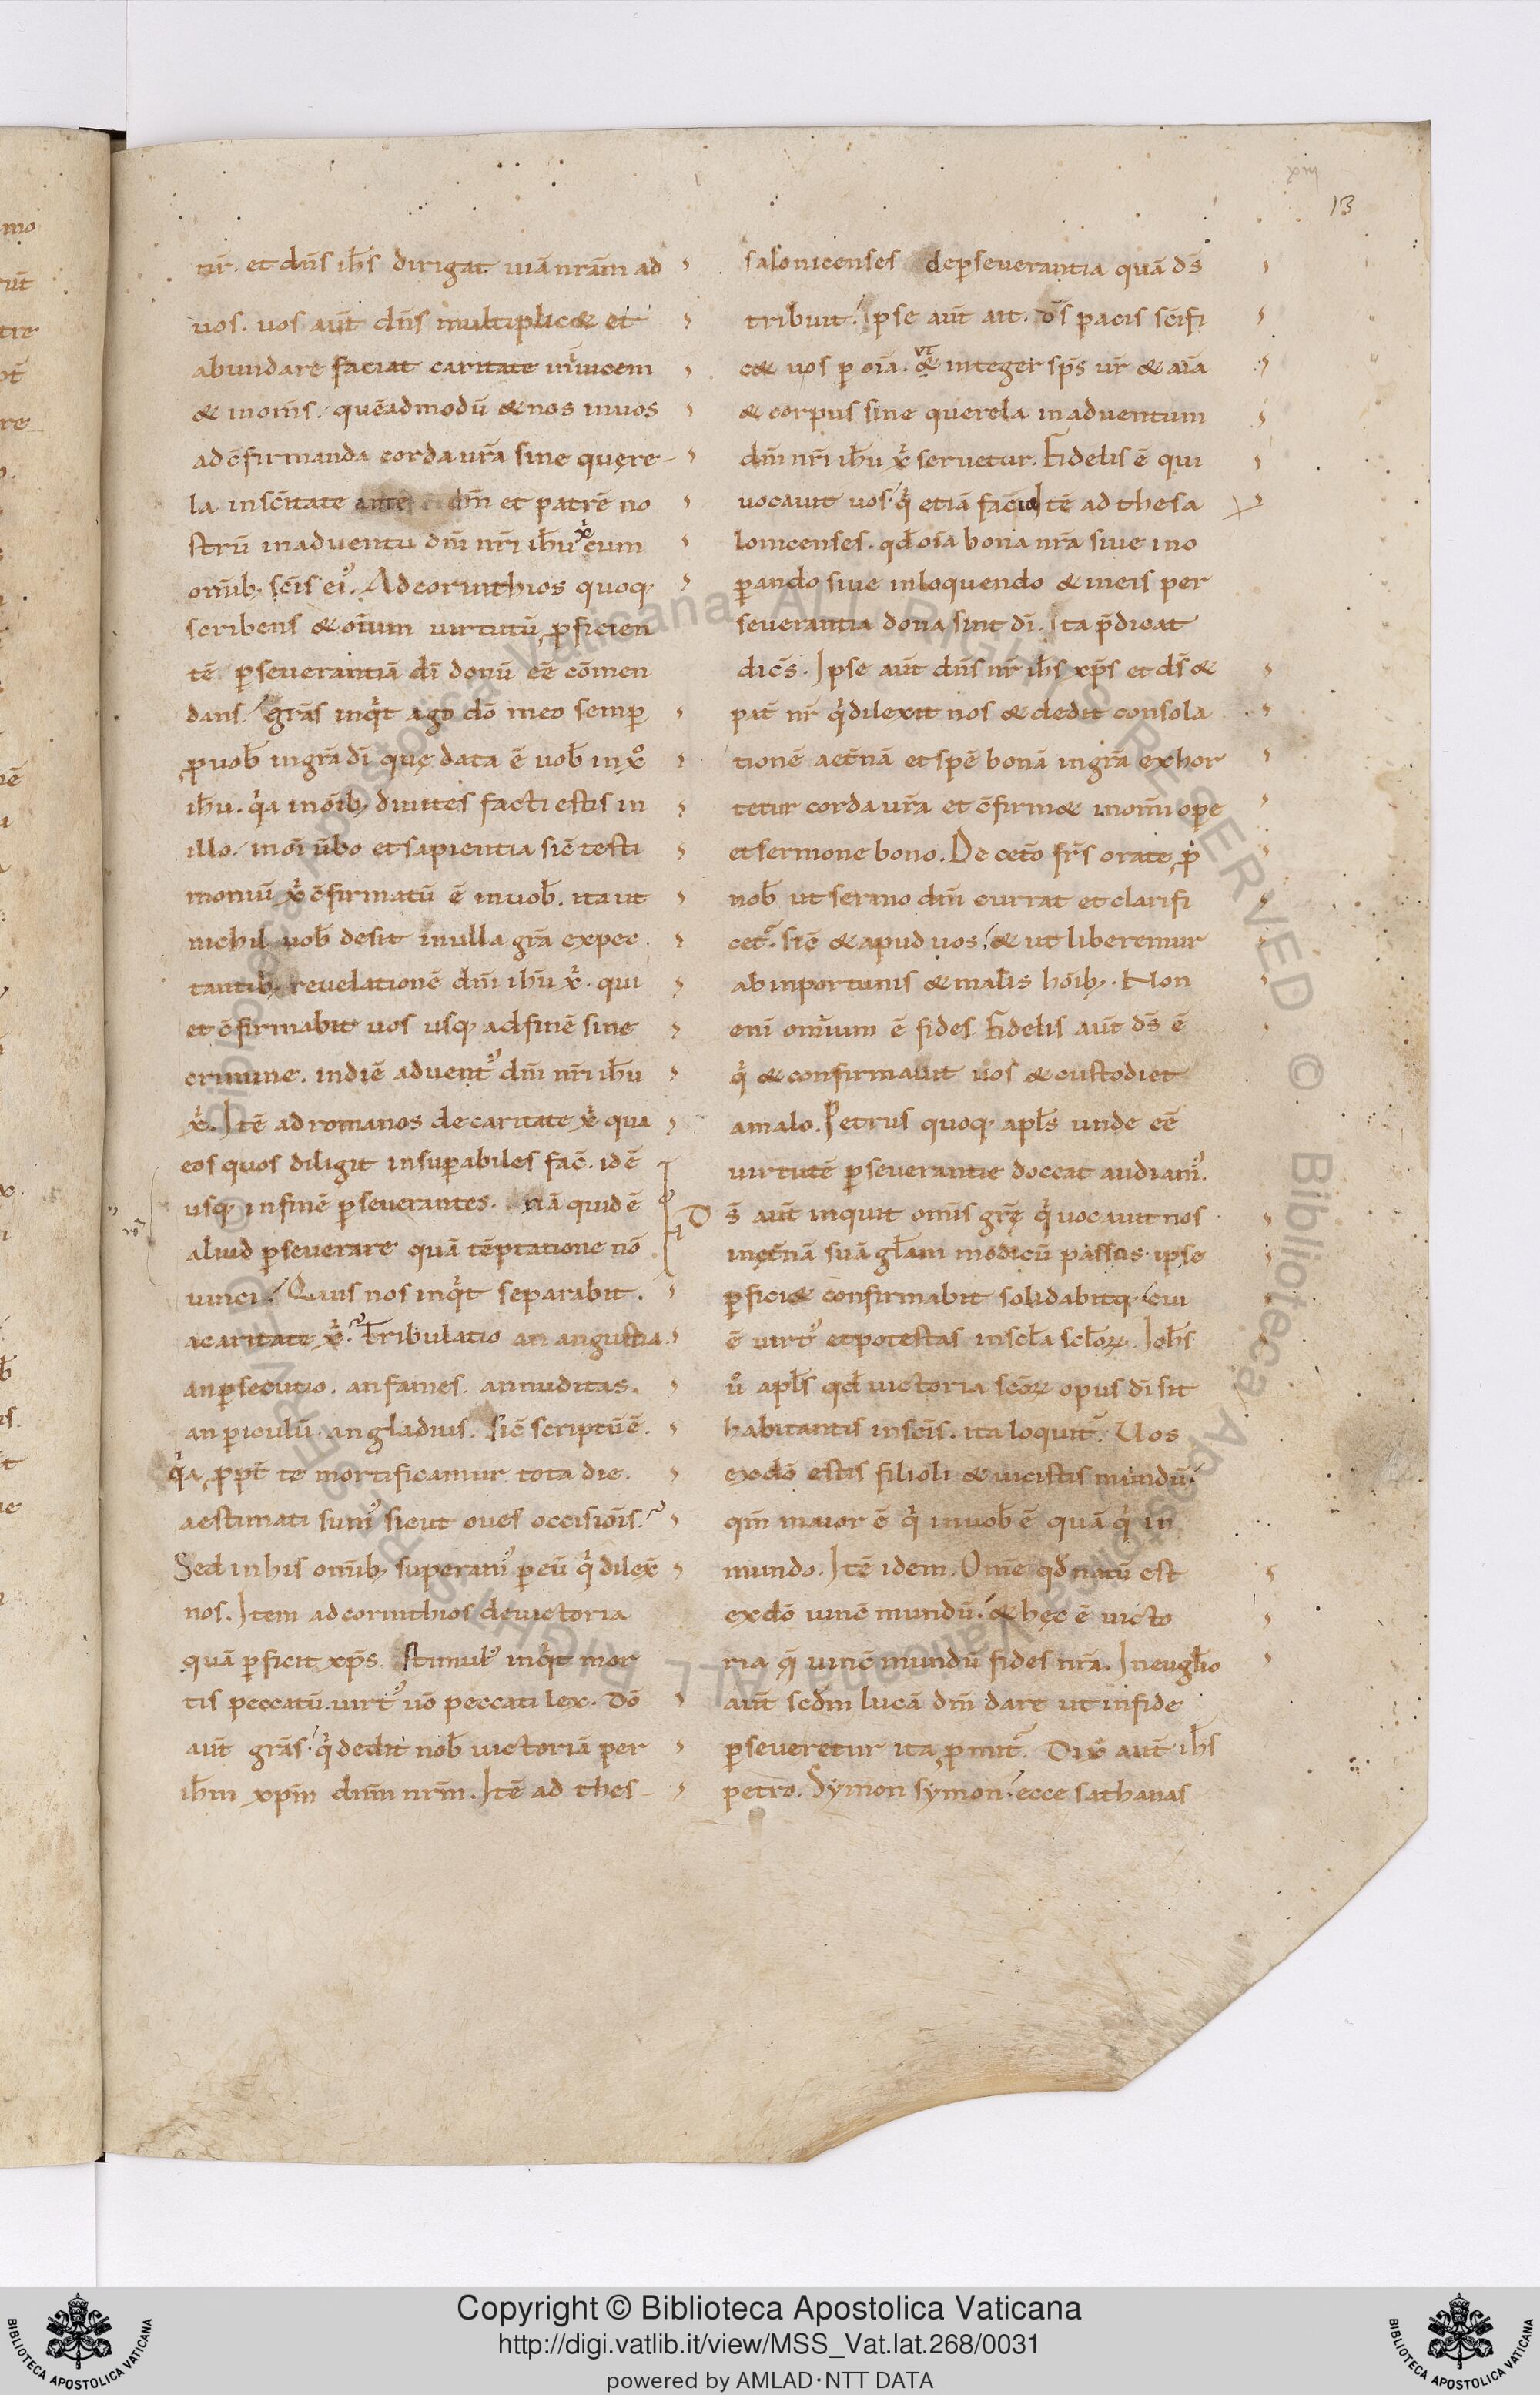 xiij
13
tr̄. et dn̄s ih̄s dirigat uiā nr̄am ad
uos. uos aūt dn̄s multiplic& et
abundare faciat caritate inuicem
& in om̄s. quēadmodū & nos inuos
ad c̄firmanda corda ur̄a sine quęre-
la insc̄itate ante dm̄ et patrē no
strū inaduentu dn̄i nr̄i ih̄u x̓ cum
om̄ib; sc̄is ei᾽. Ad corinthios quoq;
scribens & oīum uirtutū, ꝓficien
tē p̱seuerantiā dī donū eē cōmen
dans. gr̄as inq̓t ago dō meo semp̱
ꝓuob̄ ingr̄a dī quę data ē uob̄ inx̊
ih̄u. q̓a inōib; diuites facti estis in
illo. inōi ūbo et sapientia sic̄ testi
moniū x̓ c̄firmatū ē inuob̄. ita ut
nichil uob̄ desit inulla gr̄a expec
tantib; reuelationē dn̄i ih̄u x̓. qui
et c̄firmabit uos usq; ad finē sine
crimine. indiē aduent᾽ dn̄i nr̄i ih̄u
x̓. Itē ad romanos de caritate x̓ qua
eos quos diligit insup̱abiles fac̄. id ē
usq; infinē p̱seuerantes. nā quid ē
aliud p̱seuerare quā tēptatione nō
uinci. Quis nos inq̓t separabit.
a caritate x̓. Tribulatio an angustia
an p̱secutio. an fames. an nuditas.
an p̱iculū. an gladius. Sic̄ scriptū ē.
q̓a ꝓpt̄ te mortificamur tota die.
aestimati sum᾽ sicut oues occisiōis.
Sed in his om̄ib; superam᾽ p̱ eū q̓ dilex̄
nos. Item ad corinthios de uictoria
quā p̱ficit xp̄s. Stimul᾽ inq̓t mor
tis peccatū. uirt᾽ uō peccati lex. Dō
aūt gr̄as. q̓ dedit nob̄ uictoriā per
ih̄m xp̄m dn̄m nr̄m. Itē ad thes-
salonicenses de p̱seuerantia quā ds̄
tribuit. Ipse aūt ait. ds̄ pacis sc̄ifi
c& uos p̱ oīa. ut & integer sp̄s ur̄ & aīa
& corpus sine querela in aduentum
dn̄i nr̄i ih̄u x̓ seruetur. Fidelis ē qui
uocauit uos. q̓ etiā faciet Itē ad thesa
lonicenses. qd̄ oīa bona nr̄a siue ino
p̱ando siue inloquendo & ineis per
seuerantia dona sint dī. Ita p̄dicat
dicēs. Ipse aūt dn̄s nr̄ ih̄s xp̄s et ds̄ &
pat̄ nr̄ q̓ dilexit nos & dedit consola
tionē aet̄nā et spē bonā ingr̄a exhor
tetur corda ur̄a et c̄firm& inom̄i op̱e
et sermone bono. De cet̄o fr̄s orate, ꝓ
nob̄ ut sermo dn̄i currat et clarifi
cet᷑. sic̄ & apud uos. & ut liberemur
ab inportunis & malis hōib;. Non
enī omnium ē fides. Fidelis aūt ds̄ ē
q̓ & confirmauit uos & custodiet
a malo. Petrus quoq; apl̄s unde eē
uirtutē p̱seuerantie doceat audiam᾽.
Ds̄ aūt inquit om̄is gr̄ę q̓ uocauit nos
inęt̄nā suā gl̄am modicū passos. ipse
p̱fici& confirmabit solidabitq;. cui
ē uirt᾽ et potestas inscl̄a scl̄oꝝ. Ioh̄s
ů apl̄s qd̄ uictoria sc̄oꝝ opus dī sit
habitantis in sc̄is. ita loquit᷑. Uos
exdō estis filioli & uicistis mundū.
qm̄ maior ē q̓ in uob̄ ē quā q̓ in
mundo. Itē idem. Om̄e qd̄ natū est
exdō uinc̄ mundū. & hęc ē uicto
ria q̄ uinc̄ mundū fides nr̄a. In eugl̄io
aūt scd̄m lucā dn̄m dare ut infide
p̱seueretur ita, ꝓmitt᷑. Dix̄ aūt ih̄s
petro. Symon symon. ecce sathanas
Copyright © Biblioteca Apostolica Vaticana
http://digi.vatlib.it/view/MSS_Vat.lat.268/0031
powered by AMLAD·NTT DATA